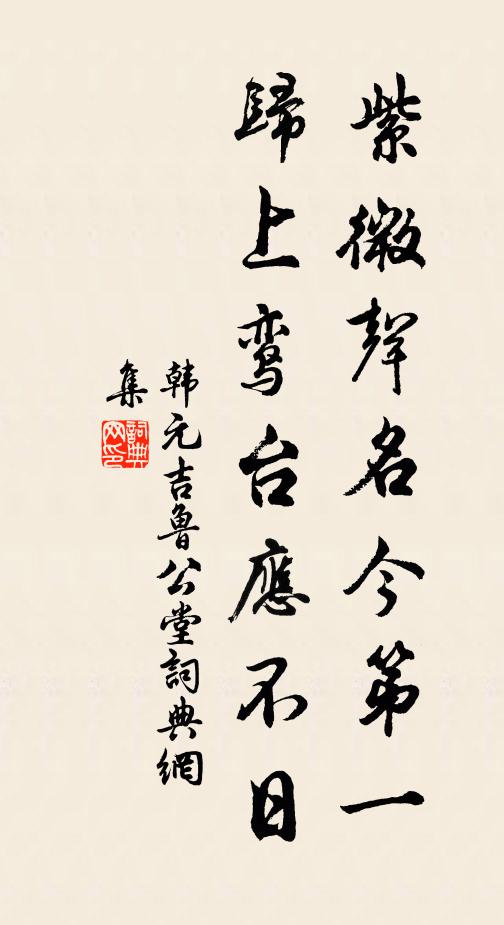 紫微聲名今第一
歸上鸾台應不日
韩元吉魯公堂詞典網
集
詞典
网印